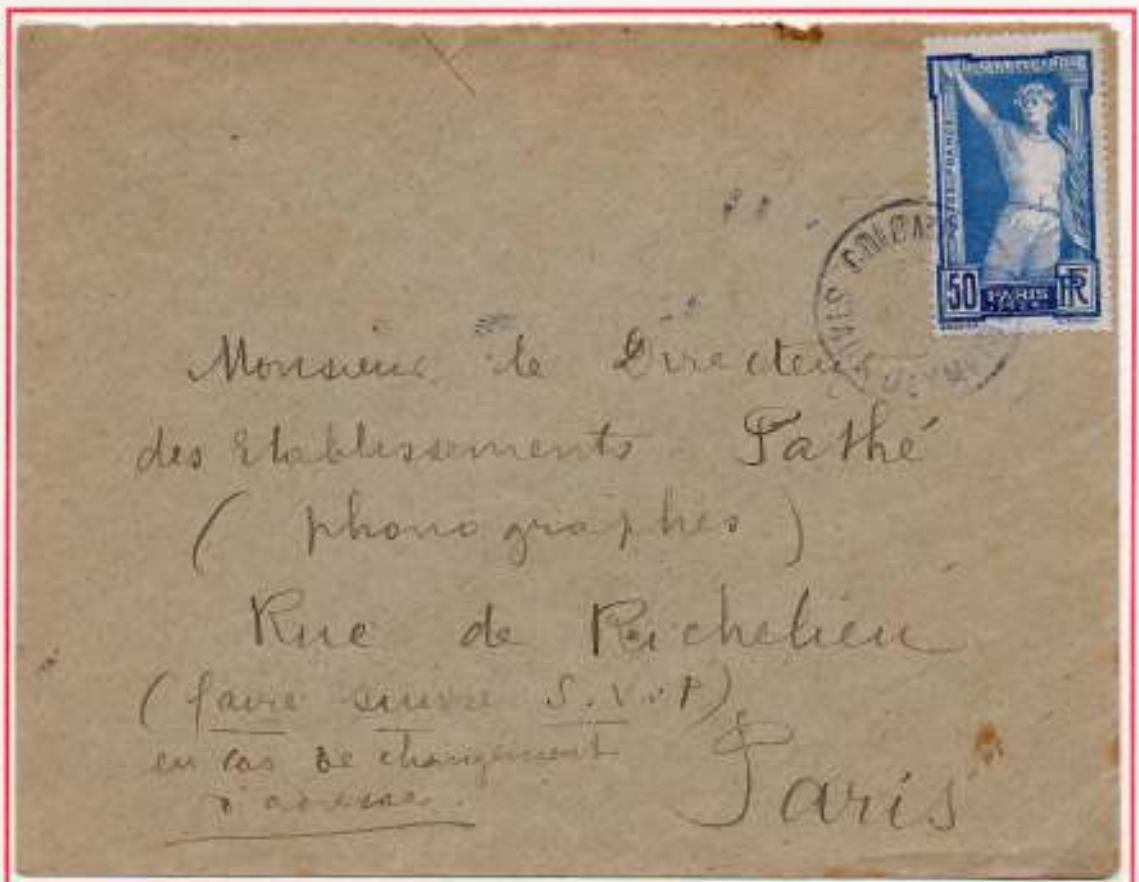 50
PARIS
RF
Monsieur le Directeur
des Etablissements Pathé
(phonographes)
Rue de Richelieu
(faire suivre S.V.P)
en cas de changement
d'adresse.
Paris